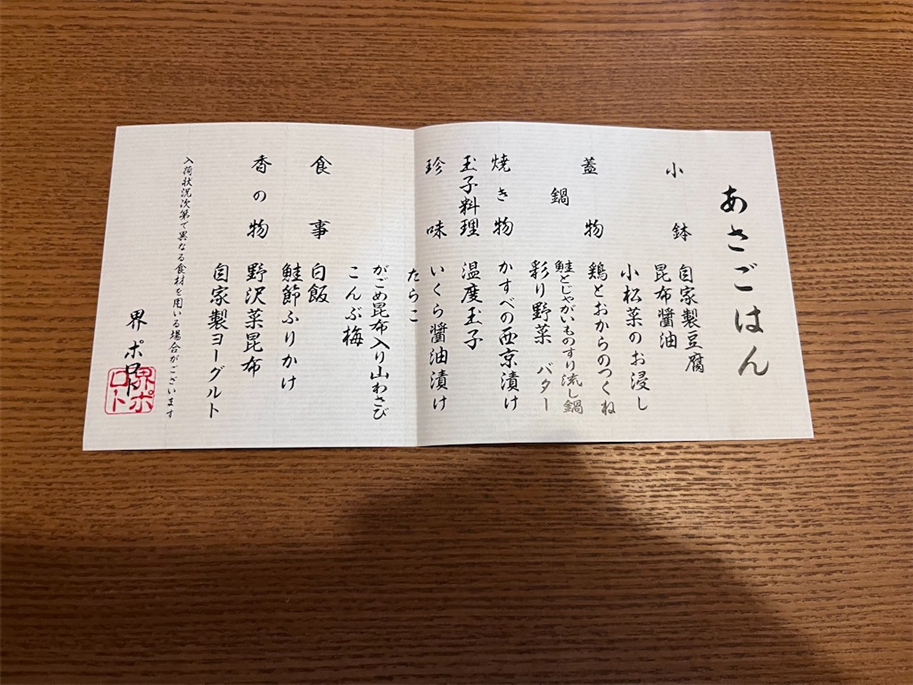 あさごはん
小鉢
自家製豆腐
昆布醤油
小松菜のお浸し
蓋物
鶏とおからのつくね
鍋
鮭とじゃがいものすり流し鍋
彩り野菜 バター
焼き物
かすべの西京漬け
玉子料理
温度玉子
珍味
いくら醤油漬け
たらこ
がごめ昆布入り山わさび
こんぶ梅
食事
白飯
鮭節ふりかけ
香の物
野沢菜昆布
自家製ヨーグルト
入荷状況次第で異なる食材を用いる場合がございます
界 ポロト
界ポロト